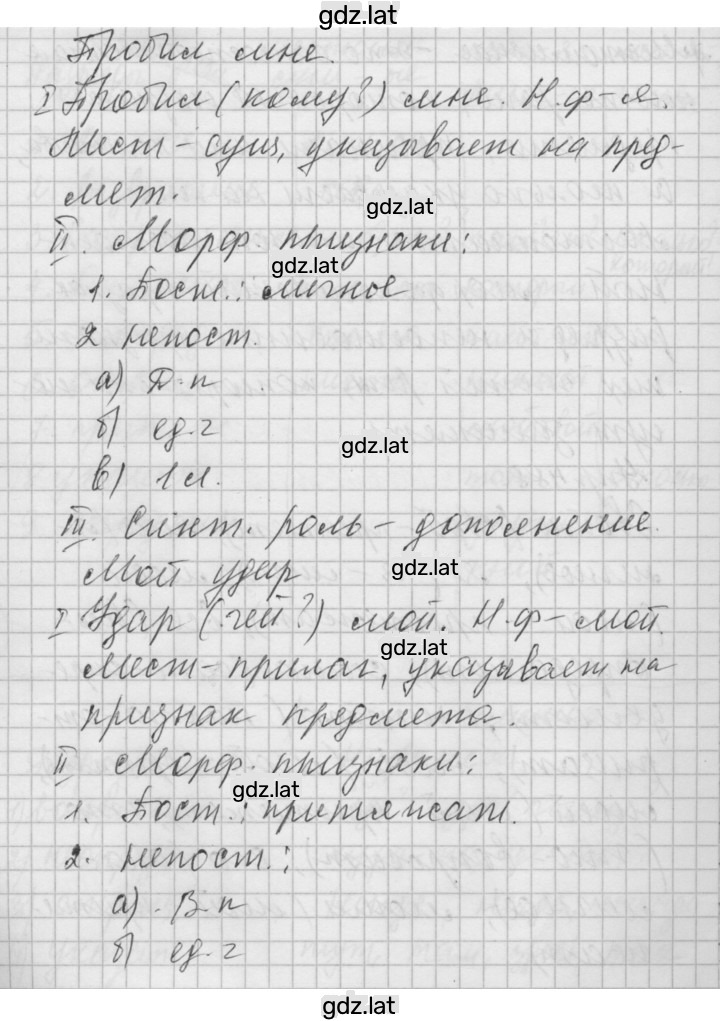 gdz.lat
Пробил мне.
I Пробил (кому?) мне. Н.ф-я.
Мест-сущ, указывает на пред-
мет.
gdz.lat
II. Морф. признаки:
gdz.lat
1. Пост.: личное
2 непост.
а) Д.п
б) ед.ч
gdz.lat
в) 1л.
III. Синт. роль - дополнение.
Мой удар
gdz.lat
I Удар (чей?) мой. Н.ф-мой.
gdz.lat
Мест-прилаг, указывает на
признак предмета.
II Морф. признаки:
gdz.lat
1. Пост.: притяжат.
2. непост.:
а). В.п
б) ед.ч
gdz.lat